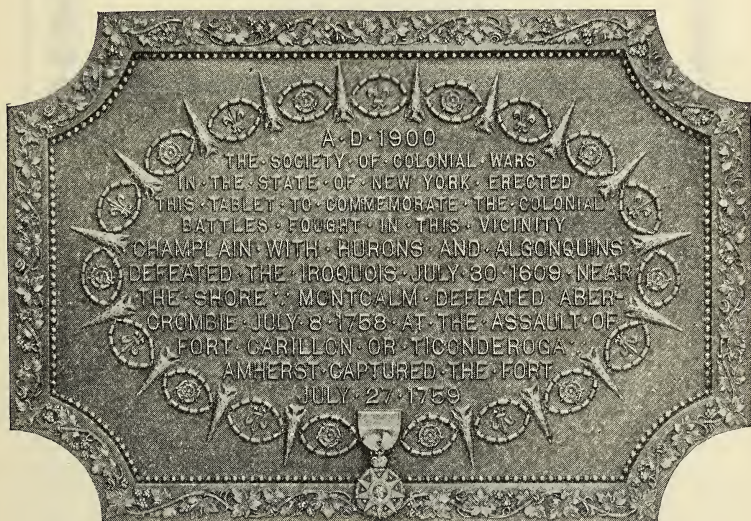 A·D·1900
THE·SOCIETY·OF·COLONIAL·WARS
IN·THE·STATE·OF·NEW·YORK·ERECTED
THIS·TABLET·TO·COMMEMORATE·THE·COLONIAL
BATTLES·FOUGHT·IN·THIS·VICINITY
CHAMPLAIN·WITH·HURONS·AND·ALGONQUINS
DEFEATED·THE·IROQUOIS·JULY·30·1609·NEAR
THE·SHORE·:·MONTCALM·DEFEATED·ABER-
CROMBIE·JULY·8·1758·AT·THE·ASSAULT·OF
FORT·CARILLON·OR·TICONDEROGA
AMHERST·CAPTURED·THE·FORT
JULY·27·1759